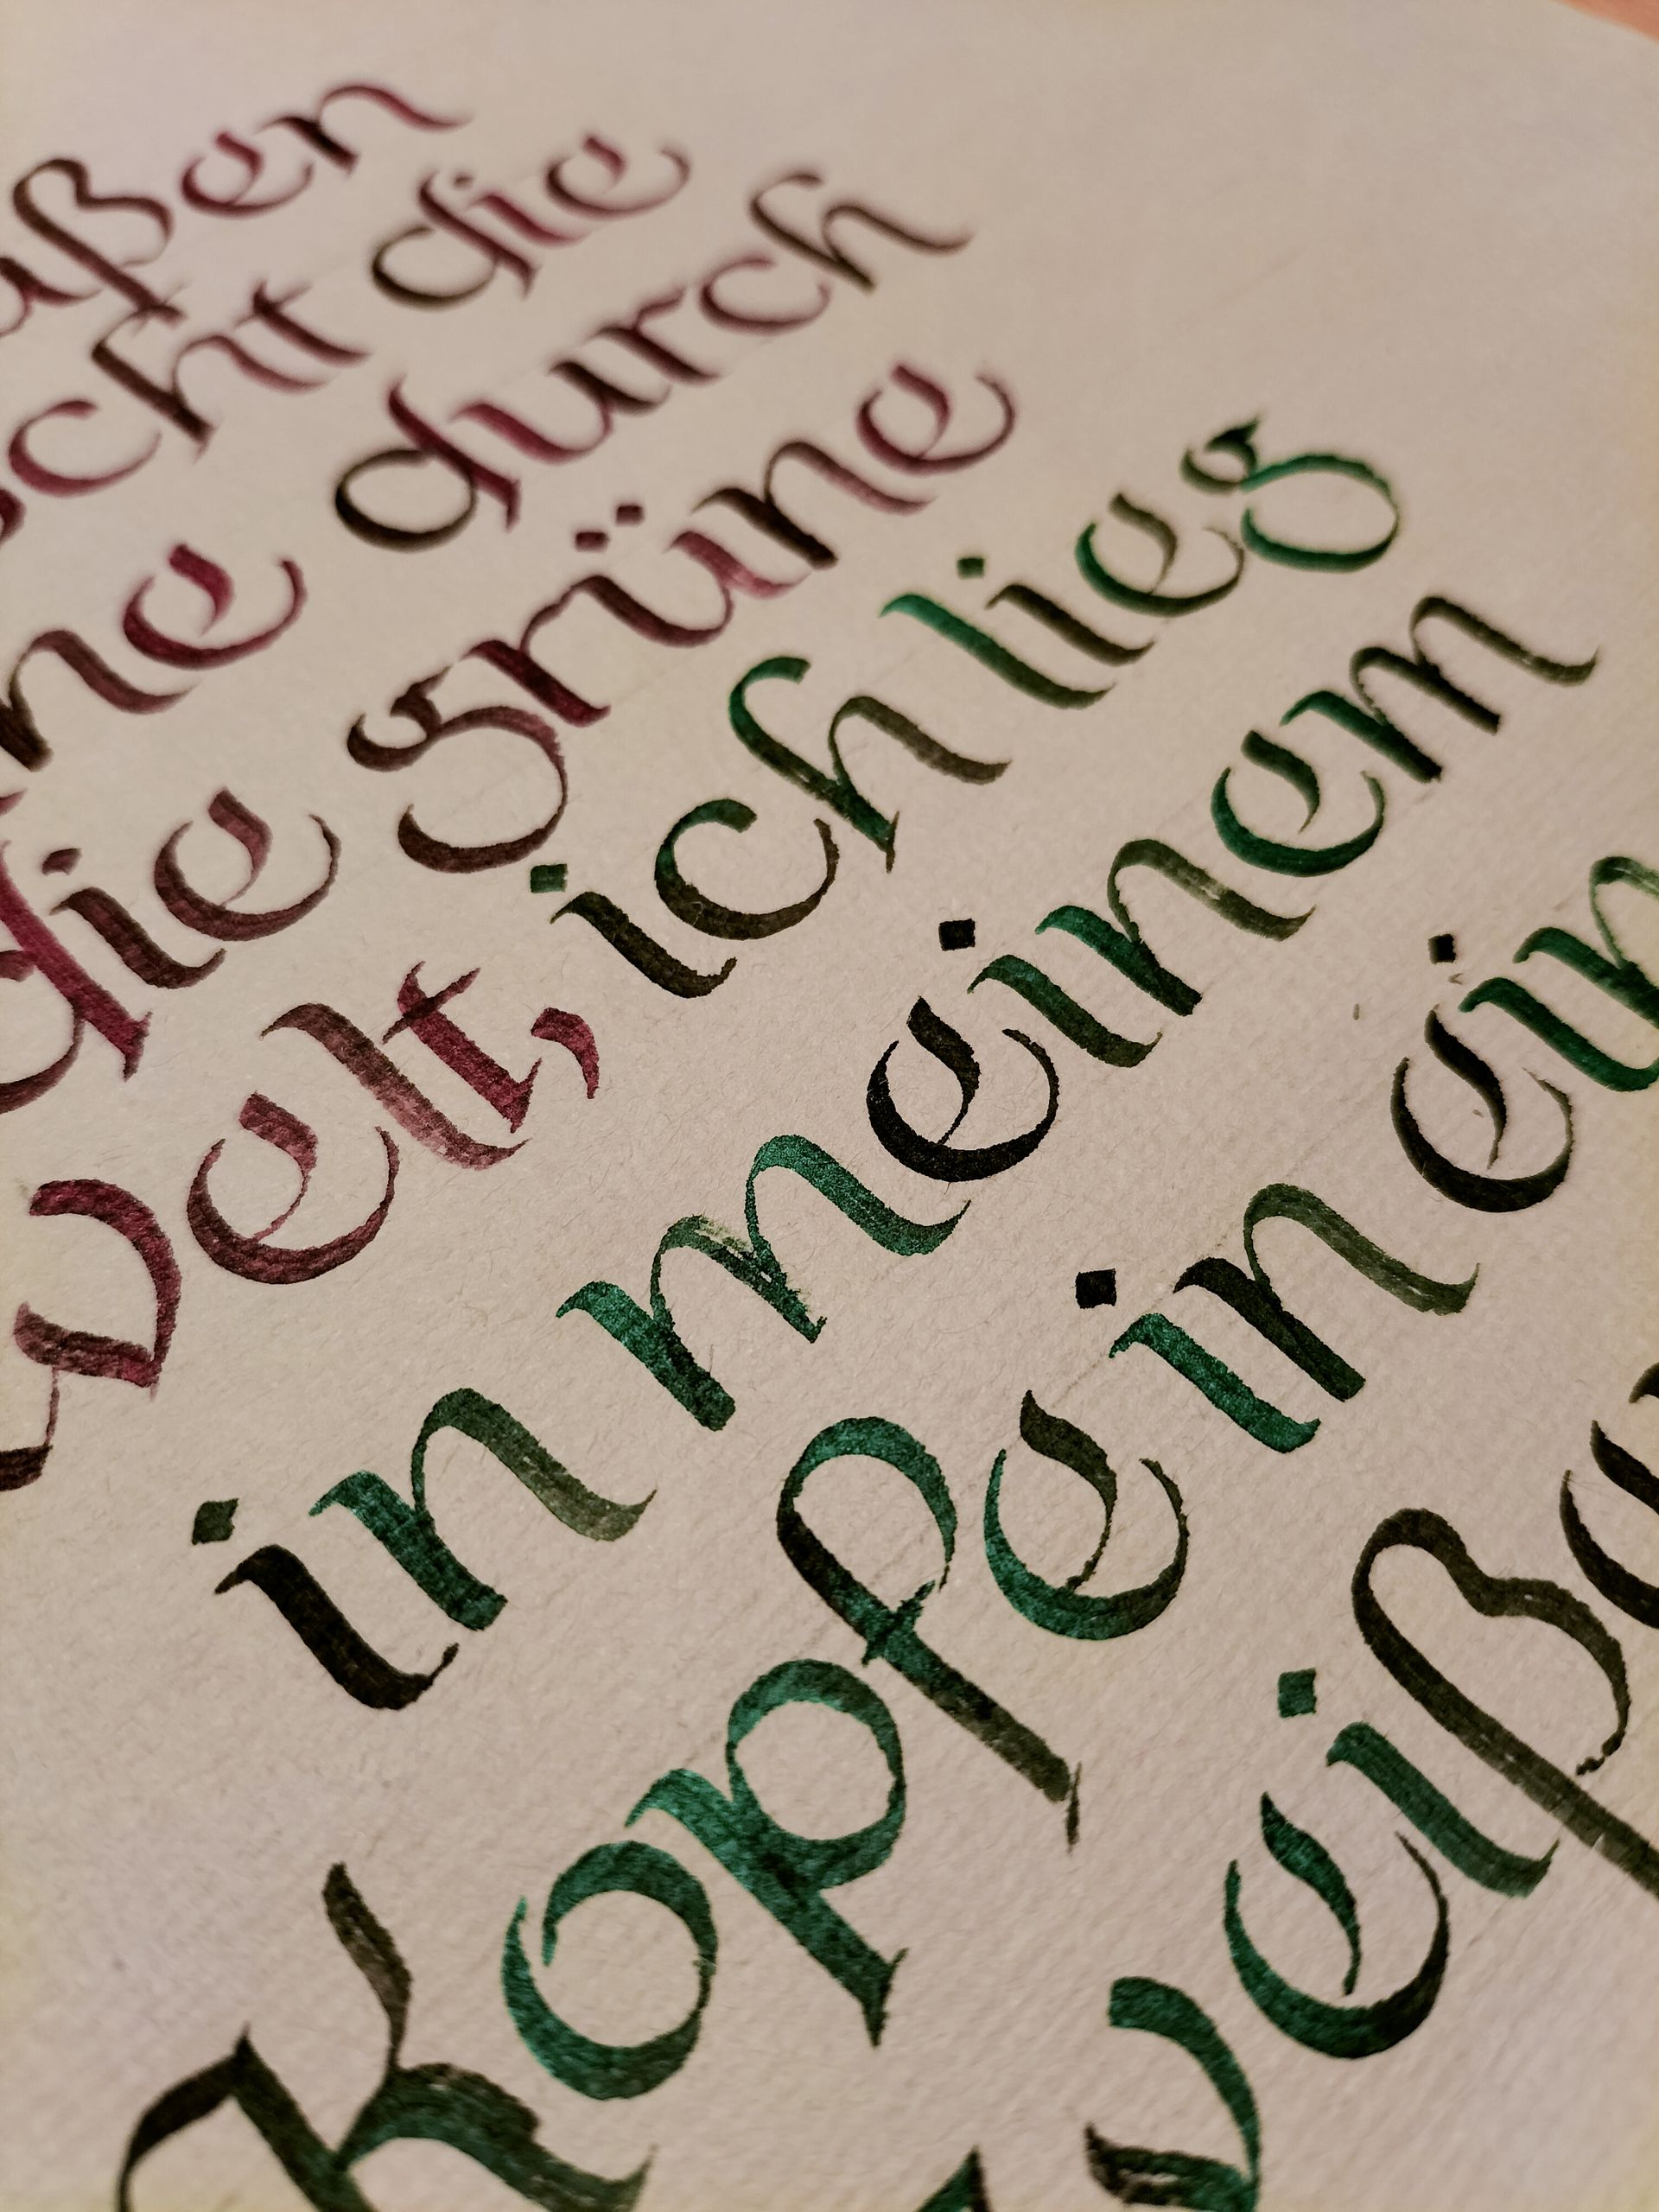 ußen
scht die
ne durch
die grüne
welt, ich lieg
in meinem
Kopf ein ein
weiß